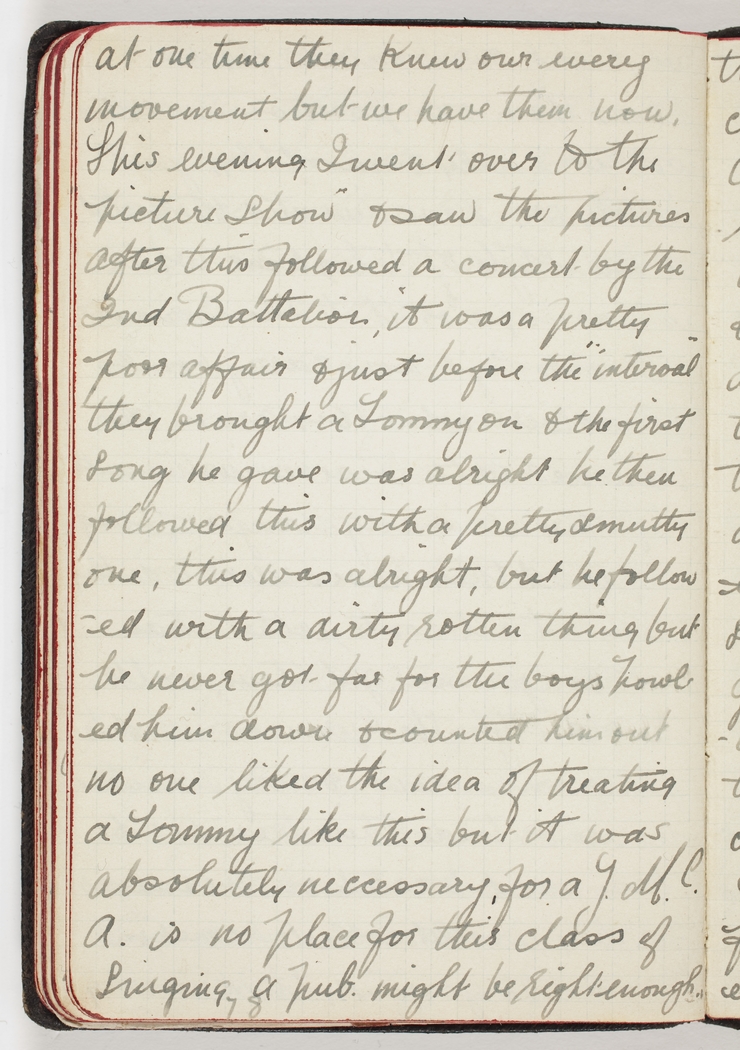 at one time they knew our every
movement but we have them now.
This evening I went over to the
"picture Show" & saw the pictures
after this followed a concert by the
2nd Battalion, it was a pretty
poor affair & just before the "interval"
they brought a Tommy on & the first
song he gave was alright he then
followed this with a pretty smutty
one, this was alright, but he follow
-ed with a dirty rotten thing but
he never got far for the boys howl-
ed him down & counted him out
no one liked the idea of treating
a Tommy like this but it was
absolutely neccessary, for a Y.M.C.
A. is no place for this class of
Singing, a pub. might be right enough.